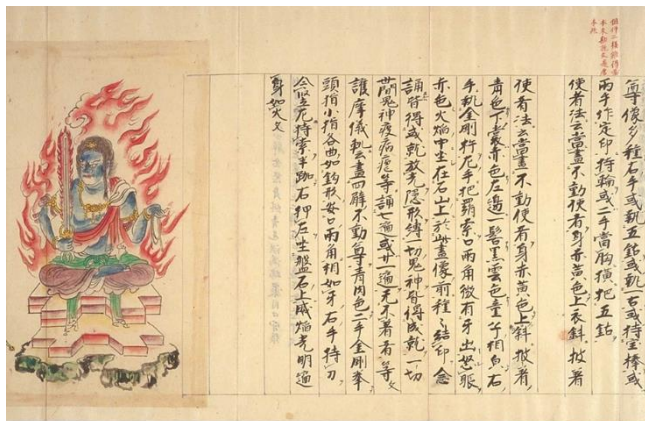 尊像多種右手或執五鈷或執一古或持宝棒或
兩手作定印持輪或二手當胸横把五鈷
使者法云當畫不動使者身赤黄色上衣斜披著
使者法云當畫不動使者身赤黄色上斜披著
青色下裳赤色左邊一髻黒雲色童子相皃右
手執金剛杵左手把羂索口兩角微有牙出怒眼
赤色火焔中坐在石山上於此畫像前種々結印念
誦皆得成就放光隠形縛一切鬼神皆得成就一切
世間鬼神疫病等誦七遍或廿遍无不著者等文
護摩儀軌云畫四臂不動尊青肉色二手金剛拳
頭指小指各曲如鈎形安口兩角相如牙右手持刀
令竪左持索半跏右押左坐盤石上威焔光明遍
身如火文